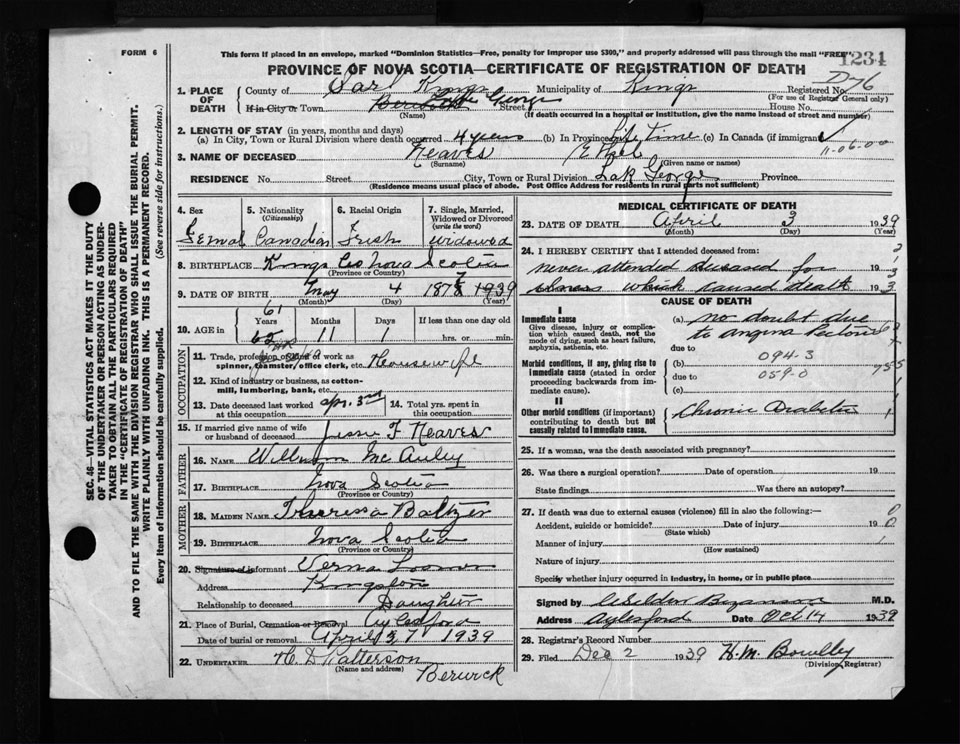 FORM 6
This form if placed in an envelope, marked "Dominion Statistics—Free, penalty for improper use $300," and properly addressed will pass through the mail "FREE"
1234
PROVINCE OF NOVA SCOTIA—CERTIFICATE OF REGISTRATION OF DEATH
1. PLACE OF DEATH County of Kings Municipality of Kings Registered No. D-76
(For use of Registrar General only)
If in City or Town George Street House No.
(Name) (If death occurred in a hospital or institution, give the name instead of street and number)
2. LENGTH OF STAY (in years, months and days)
(a) In City, Town or Rural Division where death occurred 4 years (b) In Province Life Time (c) In Canada (if immigrant)
11-06-0-0
3. NAME OF DECEASED Neaves Ethel
(Surname) (Given name or names)
RESIDENCE No. Street City, Town or Rural Division Lak George Province
(Residence means usual place of abode. Post Office Address for residents in rural parts not sufficient)
4. Sex 5. Nationality (Citizenship) 6. Racial Origin 7. Single, Married, Widowed or Divorced (write the word)
Femal Canadian Irish widowed
8. BIRTHPLACE Kings Co Nova Scotia
(Province or Country)
9. DATE OF BIRTH May 4 187
(Month) (Day) (Year)
61
10. AGE in Years Months Days If less than one day old
11 hrs. or min.
OCCUPATION
11. Trade, profession or kind of work as spinner, teamster, office clerk, etc. Housewife
12. Kind of industry or business, as cotton-mill, lumbering, bank, etc.
13. Date deceased last worked at this occupation Apr. 3rd 14. Total yrs. spent in this occupation
15. If married give name of wife or husband of deceased Jesse F Neaves
FATHER
16. NAME William Mc Auley
17. BIRTHPLACE Nova Scotia
(Province or Country)
MOTHER
18. MAIDEN NAME Theressa Baltzer
19. BIRTHPLACE Nova Scotia
(Province or Country)
20. Signature of informant Verna
Address Kingston
Relationship to deceased Daughter
21. Place of Burial, Cremation or Removal Aylesford
Date of burial or removal April 7 1939
22. UNDERTAKER H. D Patterson
(Name and address) Berwick
MEDICAL CERTIFICATE OF DEATH
23. DATE OF DEATH April 3 1939
(Month) (Day) (Year)
24. I HEREBY CERTIFY that I attended deceased from:
never attended deceased for 19
illness which caused death 19
CAUSE OF DEATH
I
Immediate cause
Give disease, injury or complication which caused death, not the mode of dying, such as heart failure, asphyxia, asthenia, etc.
(a) no doubt due to angina Pectoris
due to
094-3
Morbid conditions, if any, giving rise to immediate cause (stated in order proceeding backwards from immediate cause).
(b)
due to 059-0
(c)
II
Other morbid conditions (if important) contributing to death but not causally related to immediate cause.
Chronic Diabetes
25. If a woman, was the death associated with pregnancy?
26. Was there a surgical operation? Date of operation 19
State findings Was there an autopsy?
27. If death was due to external causes (violence) fill in also the following:—
Accident, suicide or homicide? Date of injury 19
(State which)
Manner of injury
(How sustained)
Nature of injury
Specify whether injury occurred in industry, in home, or in public place
Signed by M.D.
Address Aylesford Date Oct 14 1939
28. Registrar's Record Number
29. Filed Dec 2 1939 H.M.
(Division Registrar)
SEC. 46—VITAL STATISTICS ACT MAKES IT THE DUTY
OF THE UNDERTAKER OR PERSON ACTING AS UNDER-
TAKER TO OBTAIN ALL THE PARTICULARS REQUIRED
IN THE "CERTIFICATE OF REGISTRATION OF DEATH"
AND TO FILE THE SAME WITH THE DIVISION REGISTRAR WHO SHALL ISSUE THE BURIAL PERMIT.
WRITE PLAINLY WITH UNFADING INK. THIS IS A PERMANENT RECORD.
Every item of information should be carefully supplied. (See reverse side for instructions.)